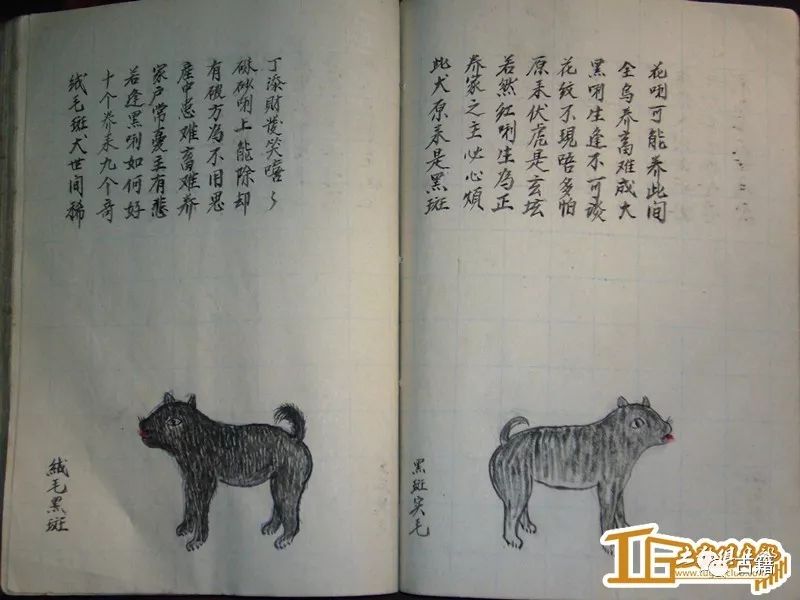 绒毛斑犬世间稀
十个养来九个奇
若逢黑唎如何好
家户常憂主有悲
産中患难畜难养
有硯方為不旧思
硃砂唎上能除却
丁添財發笑嘻々
绒毛黑斑
此犬原来是黑斑
养家之主必心烦
若然红唎生為正
原来伏虎是玄坛
花纹不現唔多怕
黑唎生逢不可谈
全乌养畜难成大
花唎可能养此间
黑斑实毛
古籍